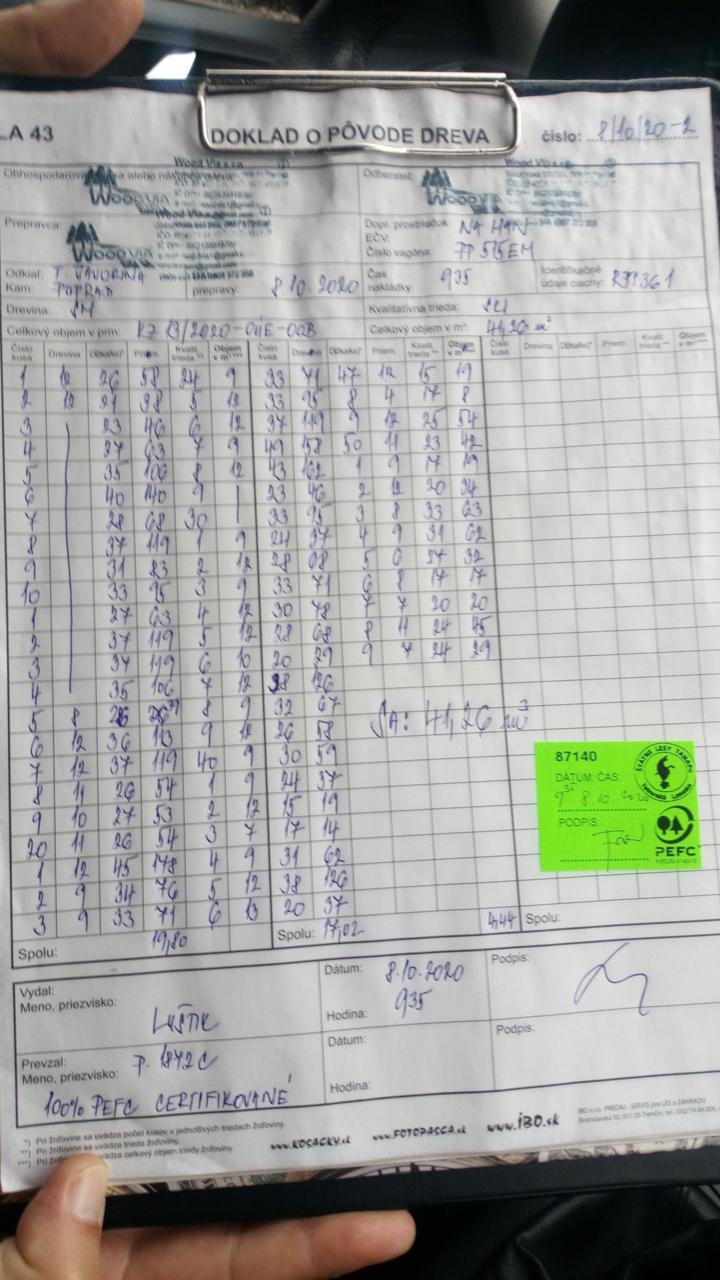 LA 43
DOKLAD O PÔVODE DREVA
číslo: 8/10/20-2
Wood Via s.r.o.
Odberateľ:
WOODVIA
Prepravca
Dopr. prostriedok NA MAN
EČV:
Číslo vagóna: PP 515EM
Odkiaľ: T. JAVORINA
Kam: POPRAD
prepravy 8.10.2020
Čas nakládky 935
Identifikačné údaje ciachy:
Drevina: SM
Kvalitatívna trieda:
Celkový objem v prm:
Celkový objem v m³: 41,26 m³
Číslo kusa Drevina Dĺžka/ks* Priem. Kvalit. trieda ** Objem v m³***
1 12 26 58 24 9 33 71 47 12 15 19
2 12 21 38 5 12 33 95 8 4 17 8
3 23 46 6 12 37 119 9 12 25 54
4 27 63 7 9 49 158 50 11 23 42
5 35 106 8 12 43 162 1 9 17 19
6 40 140 9 23 46 2 12 20 34
7 28 68 30 33 95 3 8 33 63
8 37 119 1 9 24 37 4 9 31 62
9 31 83 2 12 28 68 5 6 27 32
10 33 95 3 9 33 71 6 8 17 17
1 27 63 4 12 30 78 7 7 20 20
2 37 119 5 12 28 68 8 11 24 45
3 37 119 6 10 20 29 9 7 24 29
4 35 106 7 12 38 126
5 8 26 8 9 32 67
6 12 36 113 9 12 26 58
7 12 37 119 40 9 30 59
8 11 26 54 1 9 24 37
9 10 27 53 2 12 15 19
20 11 26 54 3 7 17 14
1 12 45 178 4 9 31 62
2 9 34 76 5 12 38 126
3 9 33 71 6 13 20 37
SA: 41,26 m³
87140
DÁTUM: ČAS:
8.10.2020
PODPIS:
ŠTÁTNE LESY TANAPU
Tatranská Lomnica
PEFC
Spolu: 19,80 Spolu: 17,02 4,44 Spolu:
Vydal:
Meno, priezvisko: LUŠTIK
Dátum: 8.10.2020
Hodina: 935
Podpis:
Prevzal:
Meno, priezvisko: P. 1842C
Dátum:
Hodina:
Podpis:
100% PEFC CERTIFIKOVANÉ
*) Pri žrďovine sa uvádza počet kusov v jednotlivých triedach žrďoviny.
**) Pri žrďovine sa uvádza trieda žrďoviny.
***) Pri žrďovine sa uvádza celkový objem triedy žrďoviny.
www.KOSACKY.sk www.FOTOPASCA.sk www.iBO.sk
IBO s.r.o. PREDAJ - SERVIS pre LES a ZÁHRADU